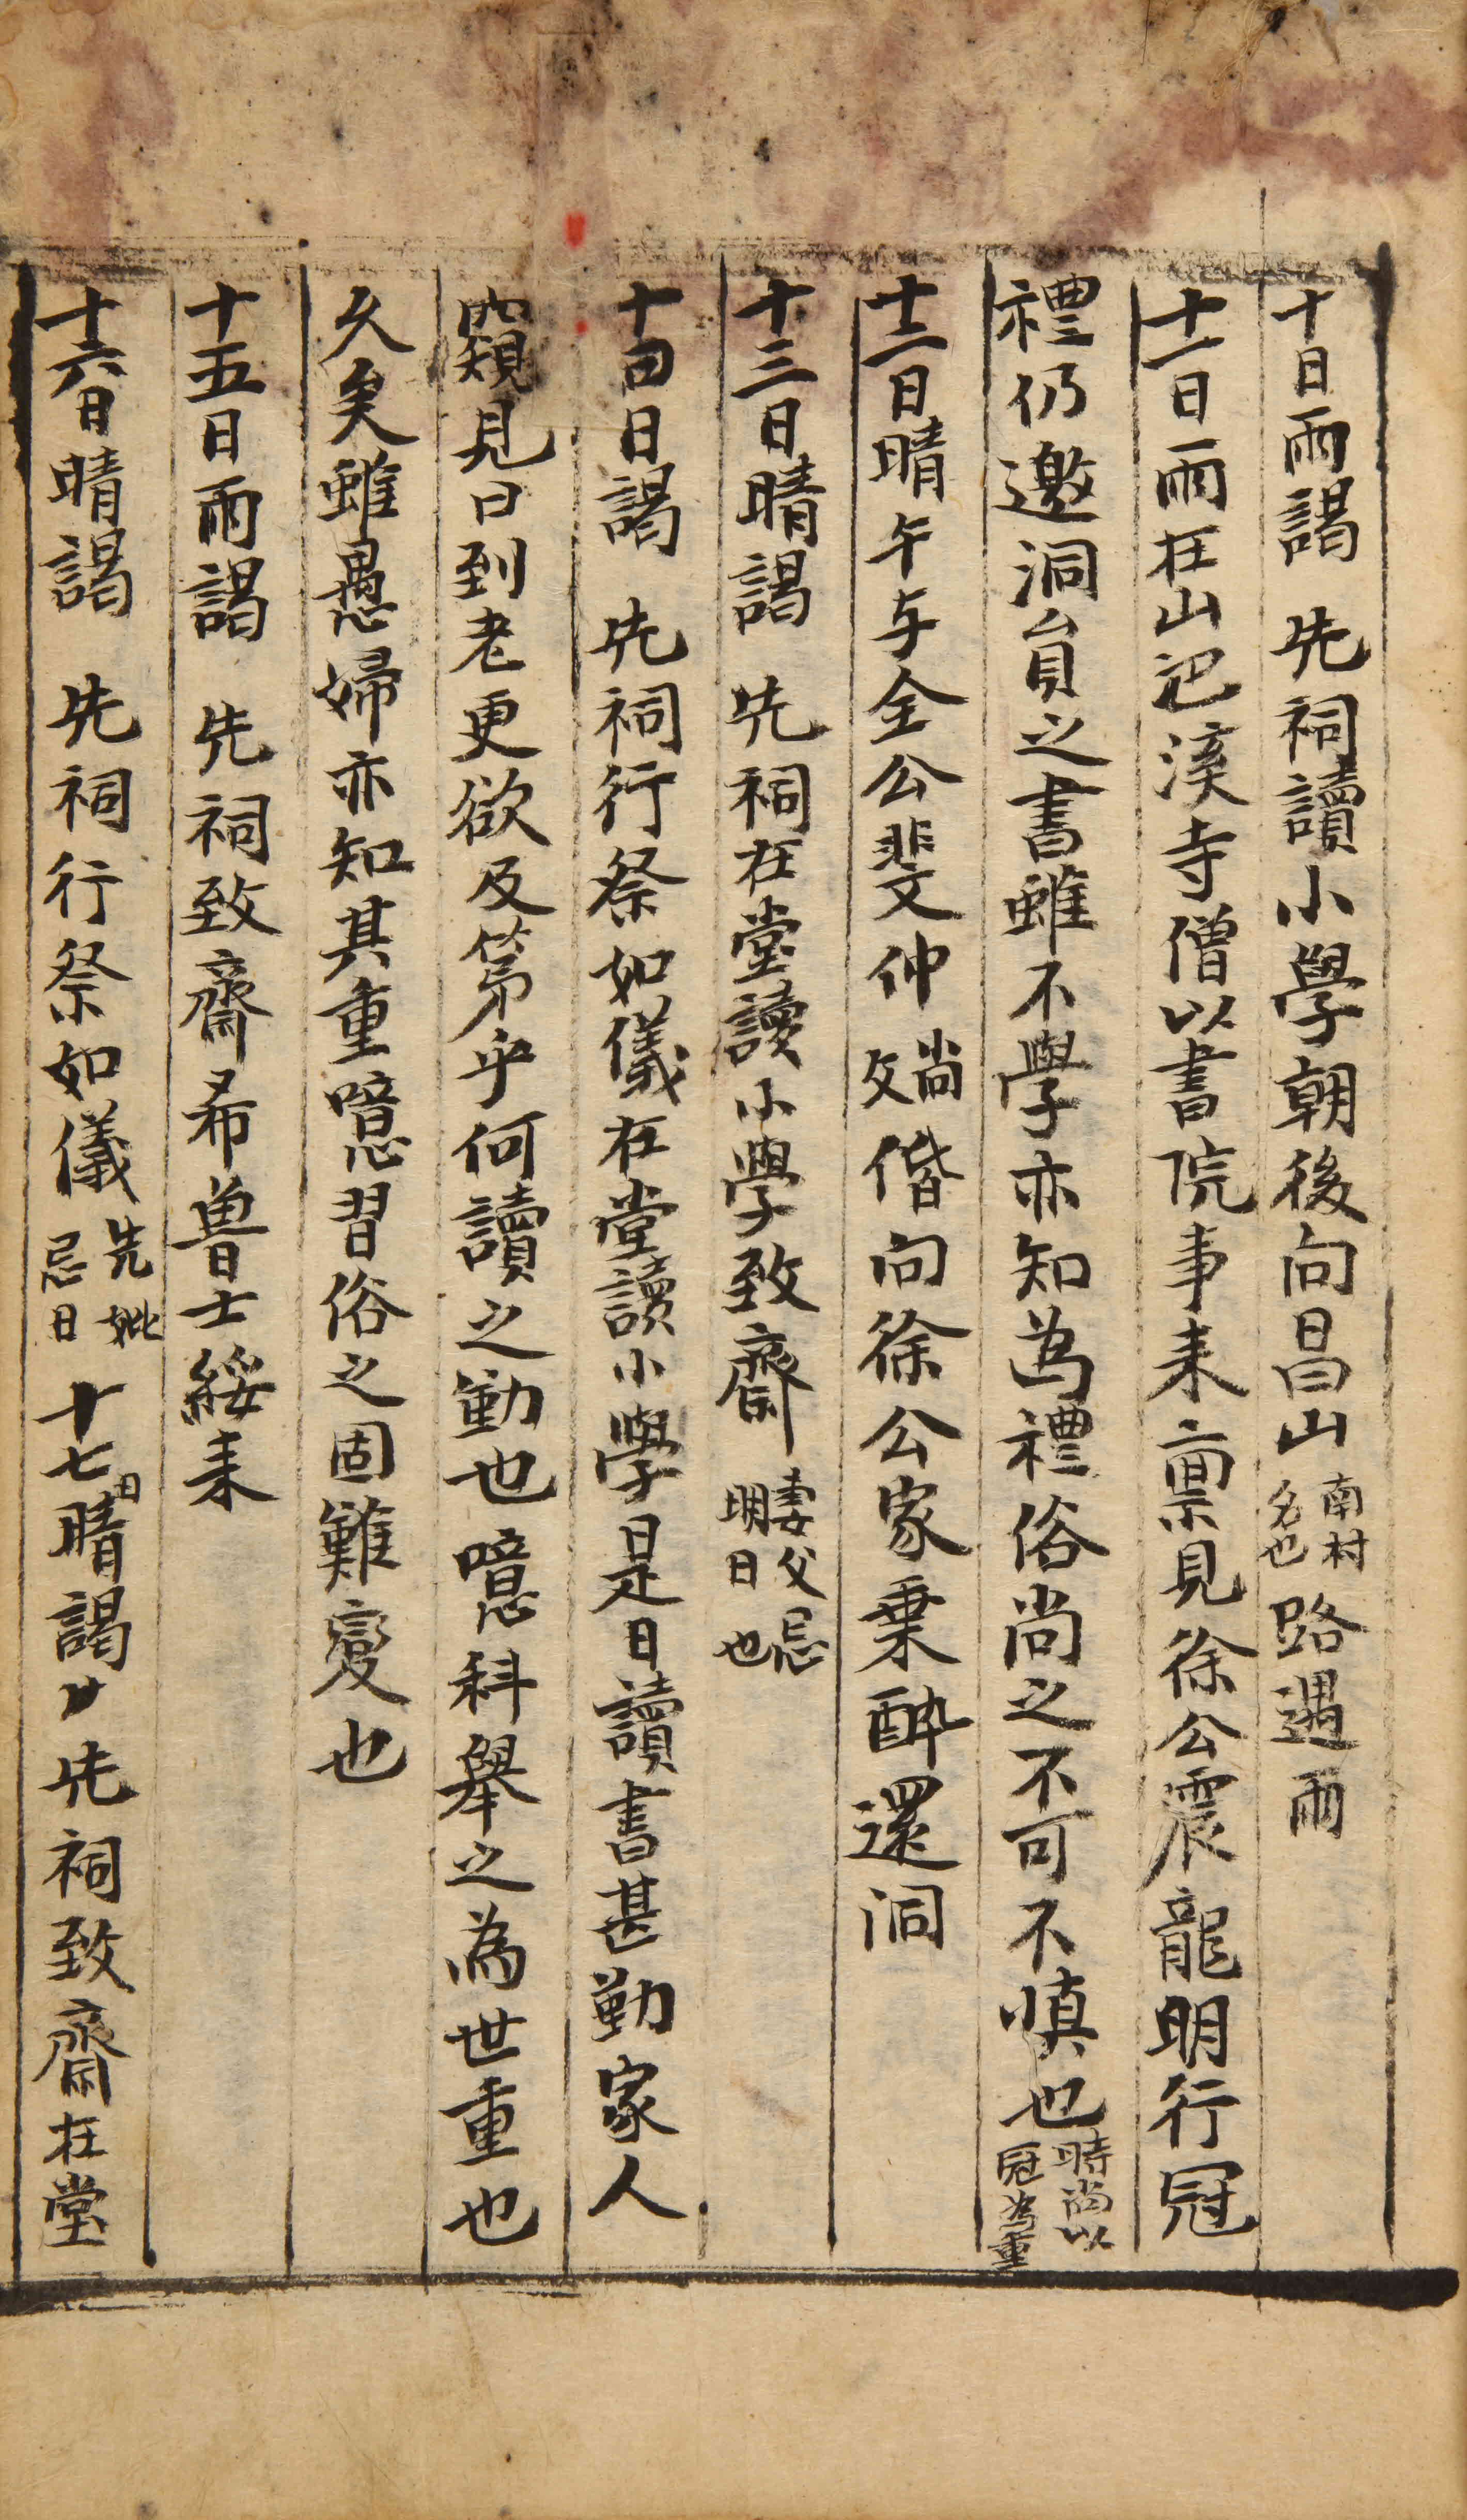 十日雨謁 先祠讀小學朝後向昌山南村名也路遇雨
十一日雨在山祀溪寺僧以書院事来禀見徐公震龍明行冠
禮仍邀洞員之書雖不學亦知為禮俗尚之不可不慎也時尚以冠為重
十二日晴午与全公斐仲尚文偕向徐公家乗酔還洞
十三日晴謁 先祠在堂讀小學致齋妻父忌明日也
十四日謁 先祠行祭如儀在堂讀小學是日讀書甚勤家人
窺見曰到老更欲及第乎何讀之勤也噫科舉之為世重也
久矣雖愚婦亦知其重噫習俗之固難變也
十五日雨謁 先祠致齋希魯士綏来
十六日晴謁 先祠行祭如儀先妣忌日 十七日晴謁 先祠致齋在堂